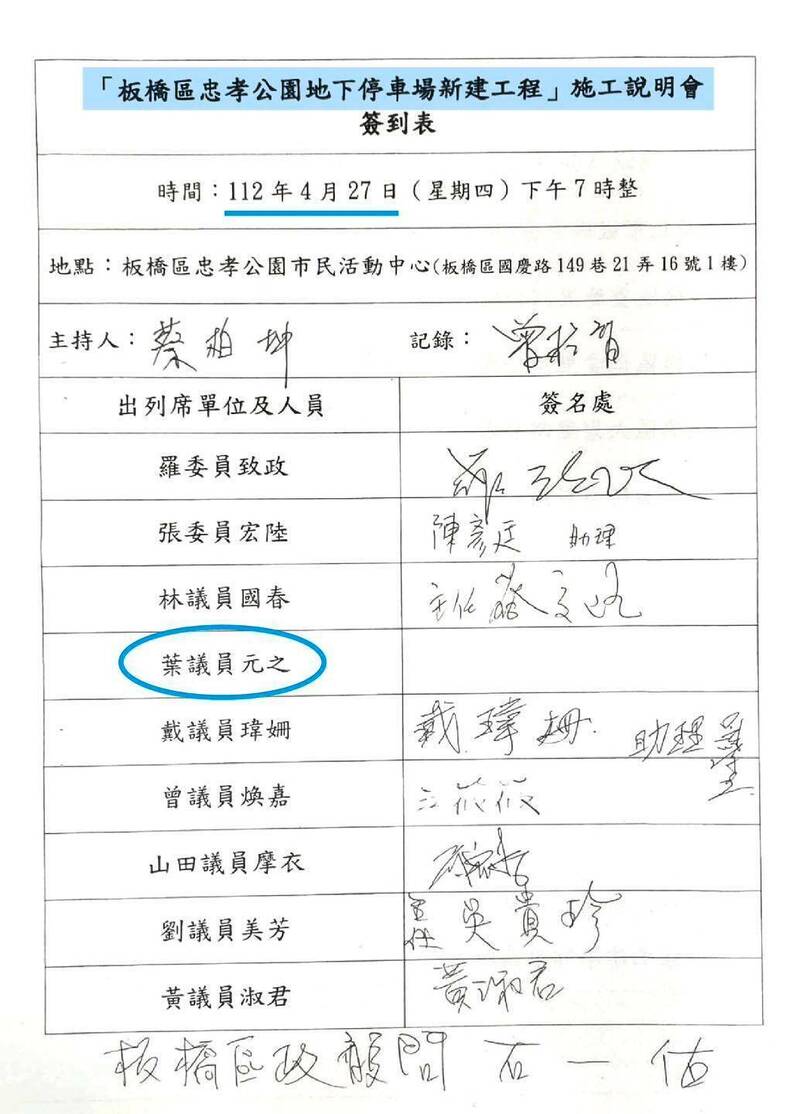 「板橋區忠孝公園地下停車場新建工程」施工說明會
簽到表
時間：112年4月27日（星期四）下午7時整
地點：板橋區忠孝公園市民活動中心(板橋區國慶路149巷21弄16號1樓)
主持人：蔡柏坤 記錄：
出列席單位及人員 簽名處
羅委員致政 羅致政
張委員宏陸 陳彥廷 助理
林議員國春 主任
葉議員元之
戴議員瑋姍 戴瑋姍 助理
曾議員煥嘉 江筱筱
山田議員摩衣
劉議員美芳 主任 吳貴珍
黃議員淑君 黃淑君
板橋區政顧問 石一佑